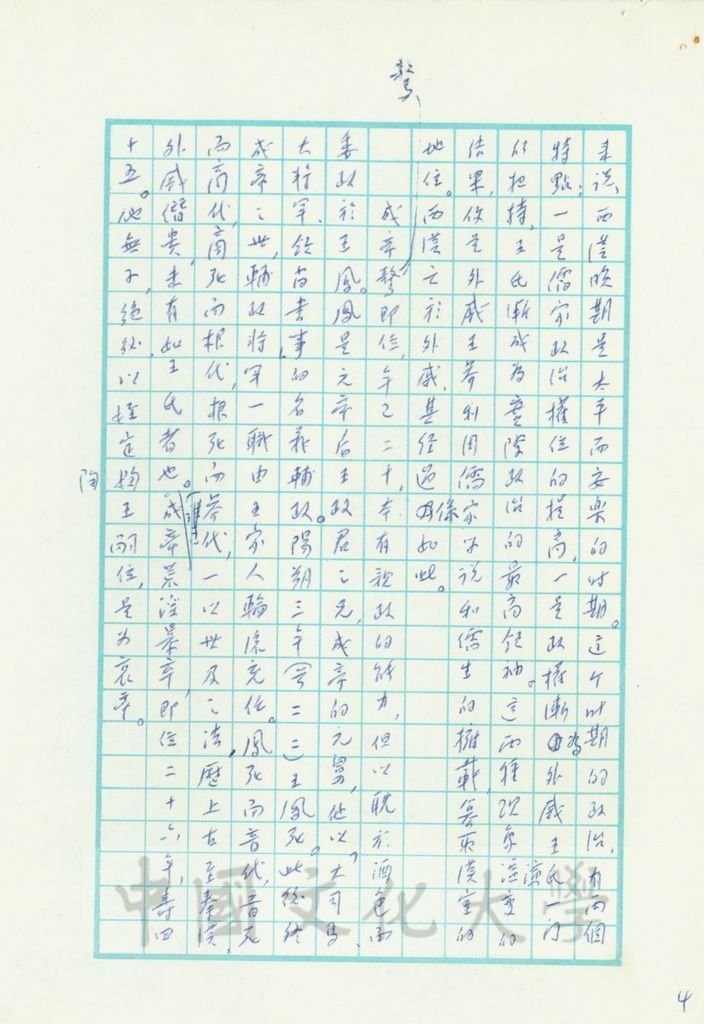 來說，西漢晚期是太平而安樂的时期。這个时期的政治，有两個
特點：一是儒家政治權位的提高，一是政權漸為外戚王氏一门
的把持，王氏漸成為實際政治的最高領袖。這两種現象演變的
结果，便是外戚王莽利用儒家学說和儒生的擁戴，篡取漢室的
地位。西漢亡於外戚，其经過係如此。
成帝驁即位，年已二十，本有親政的能力，但以耽於酒色，而
委政於王鳳。鳳是元帝后王政君之兄，成帝的元舅，他以大司馬、
大将军、领尚書事的名義輔政。陽朔三年(二二)王鳳死。此後终
成帝之世，輔政将军一職由王家人輪流充任。鳳死而音代，音死
而商代，商死而根代，根死而莽代，一以世及之法，歷上古至秦漢，
外戚僭貴，未有如王氏者也。成帝荒淫暴卒，即位二十六年，壽四
十五。他無子，絕後，以姪定陶王嗣位，是为哀帝。
驁
陶
中國文化大學
4